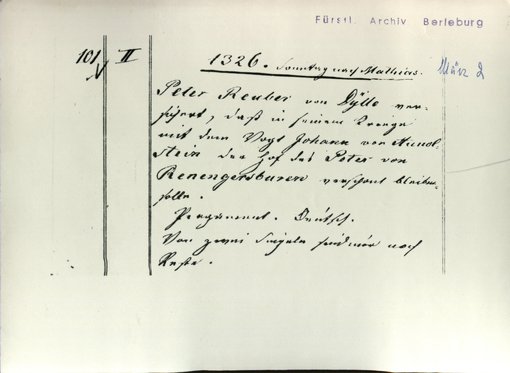 Fürstl. Archiv Berleburg
101 II 1326. Sonntag nach Mathias. März 2
Peter Reuber von Dÿlle ver-
sichert, daß in seinem Kriege
mit dem Vogt Johann von
stein der Hof des Peter von
Renengersburen verschont bleiben
solle.
Pergament. Deutsch.
Von zwei Siegeln sind nur noch
Reste.